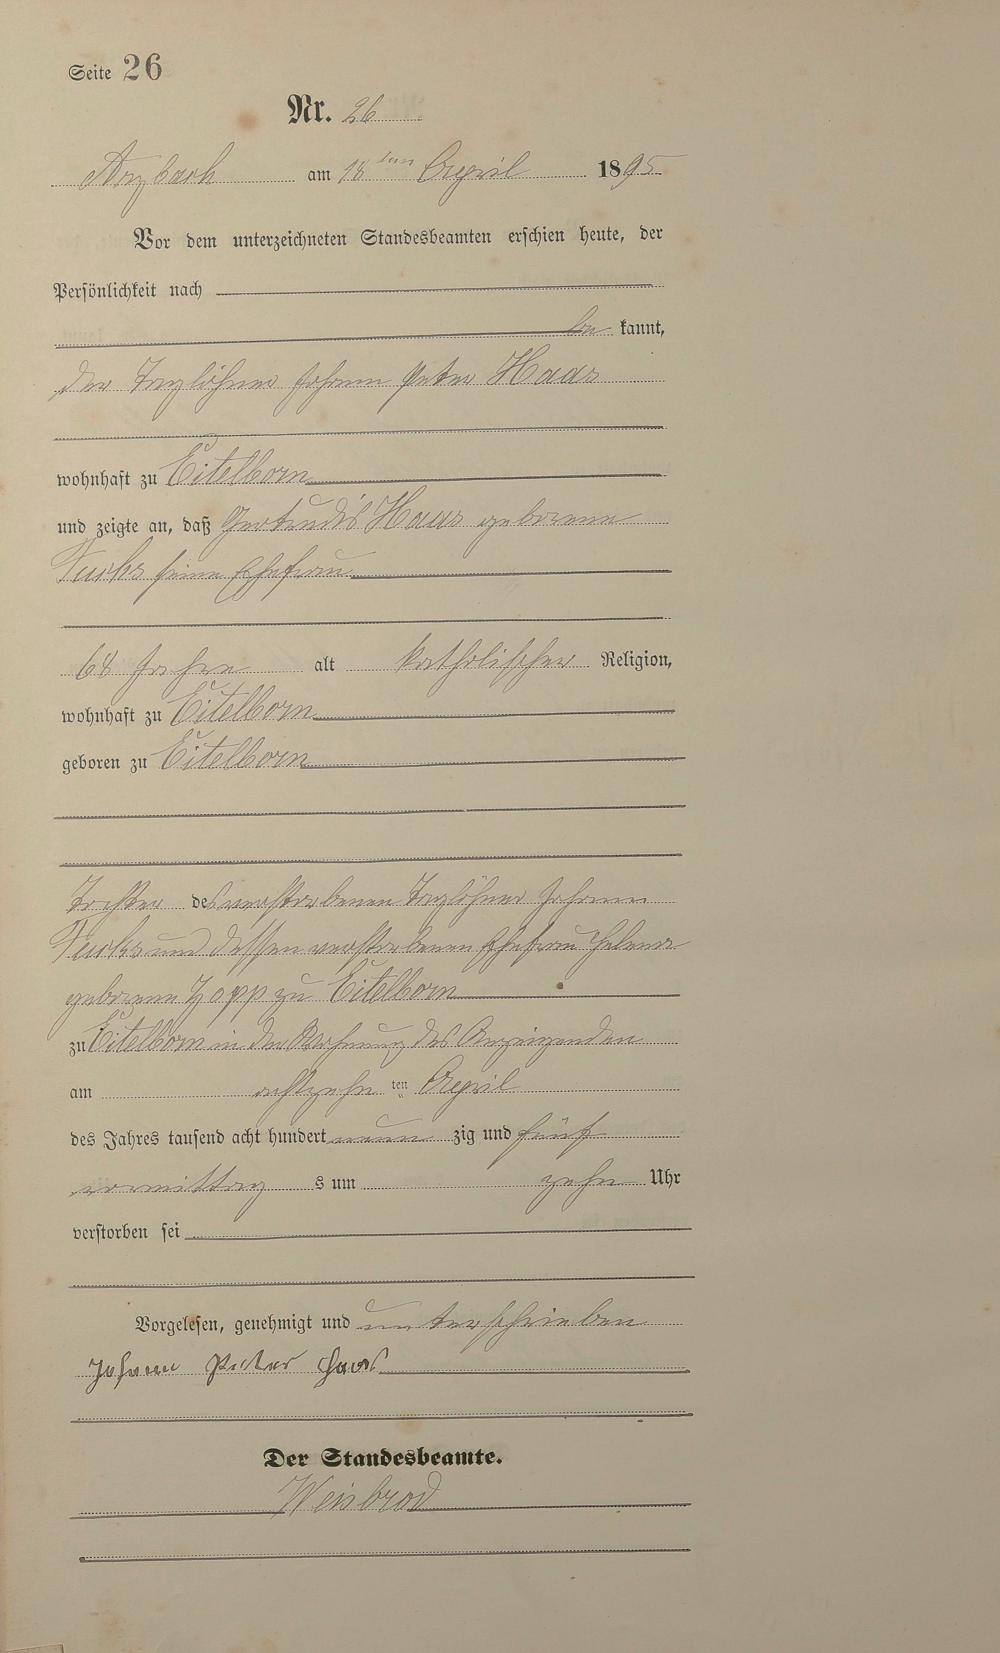 Seite 26
Nr. 26
Arzbach am 18ten April 1895
Vor dem unterzeichneten Standesbeamten erschien heute, der
Persönlichkeit nach
be kannt,
der Taglöhner Johann Peter Haas
wohnhaft zu Eitelborn
und zeigte an, daß Gertrudis Haas geborene
Fuchs seine Ehefrau
68 Jahre alt katholischer Religion,
wohnhaft zu Eitelborn
geboren zu Eitelborn
Tochter des verstorbenen Taglöhner Johann
Fuchs und dessen verstorbenen Ehefrau Helena
geborene Zopp zu Eitelborn
zu Eitelborn in der Wohnung des Anzeigenden
am achtzehn ten April
des Jahres tausend acht hundert neun zig und fünf
vormittag s um zehn Uhr
verstorben sei
Vorgelesen, genehmigt und unterschrieben
Johann Peter Haas
Der Standesbeamte.
Weisbrod